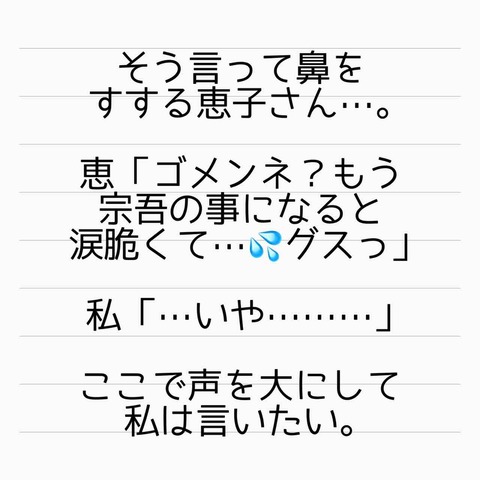 そう言って鼻を
すする恵子さん…。
恵「ゴメンネ？もう
宗吾の事になると
涙脆くて…💦グスっ」
私「…いや………」
ここで声を大にして
私は言いたい。